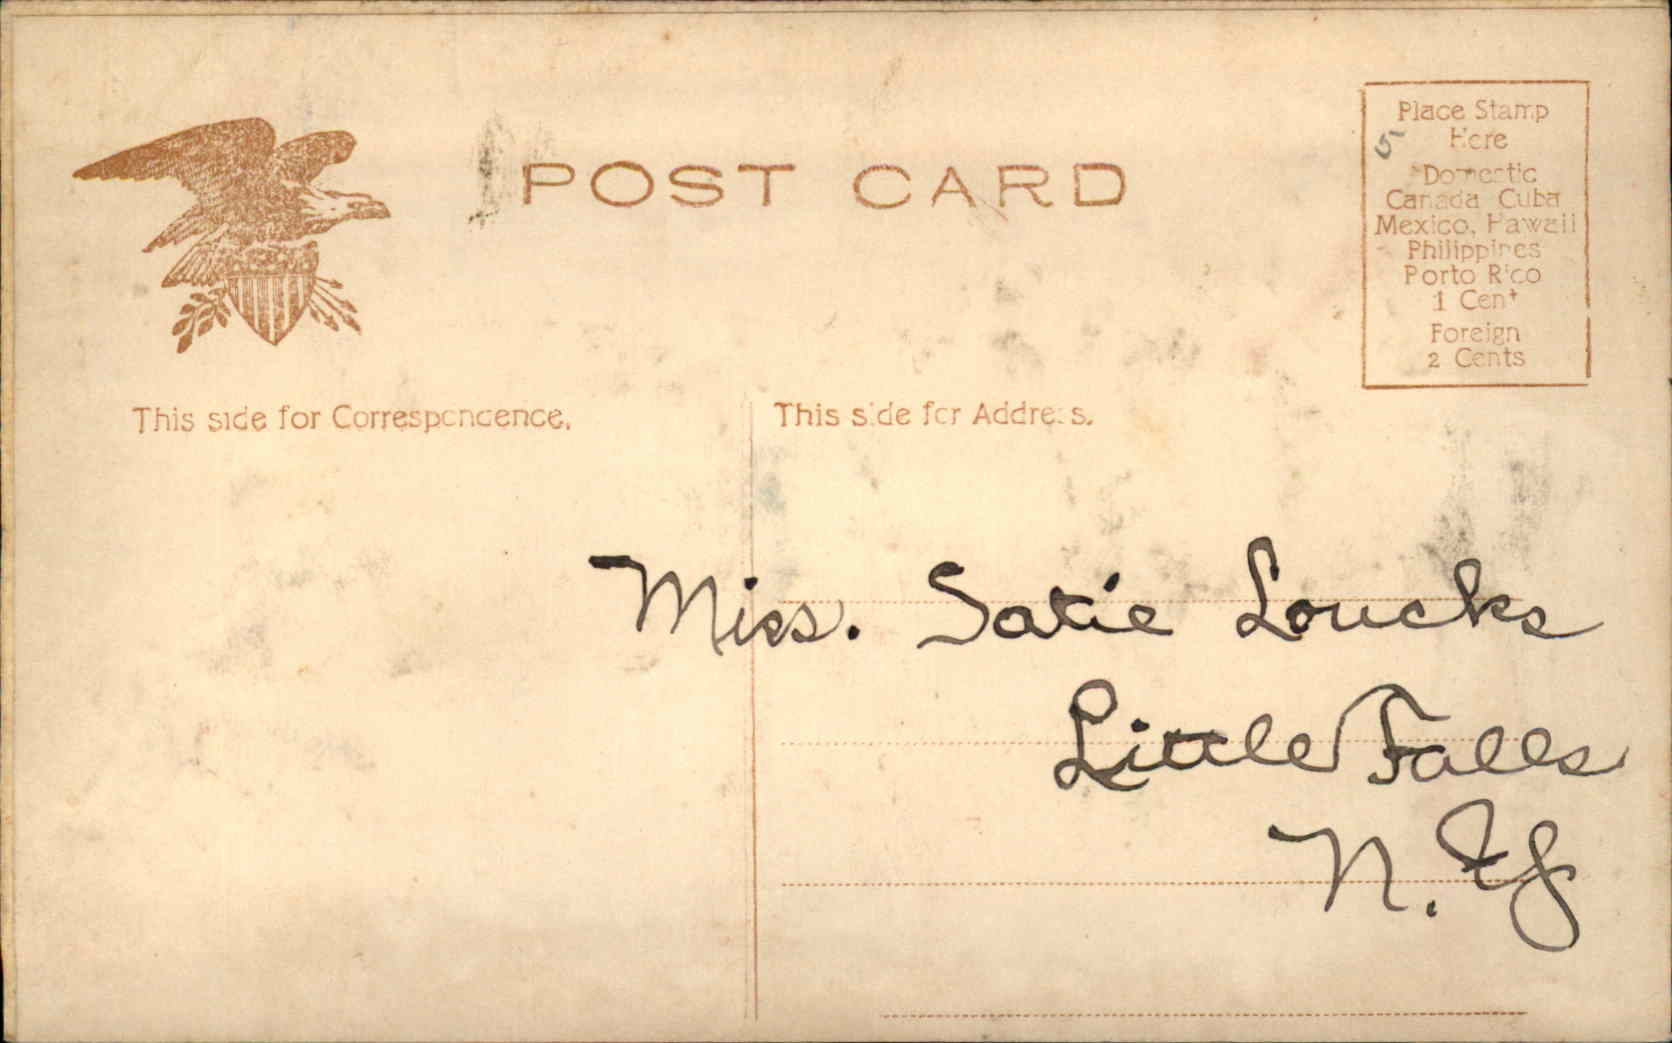 POST CARD
Place Stamp
Here
5
Domestic
Canada Cuba
Mexico, Hawaii
Philippines
Porto Rico
1 Cent
Foreign
2 Cents
This side for Correspondence.
This side for Address.
Miss. Satie Loucks
Little Falls
N. Y